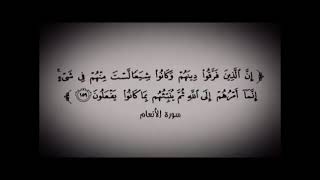 ﴿ إِنَّ الَّذِينَ فَرَّقُوا دِينَهُمْ وَكَانُوا شِيَعًا لَسْتَ مِنْهُمْ فِي شَيْءٍ ۚ
إِنَّمَا أَمْرُهُمْ إِلَى اللَّهِ ثُمَّ يُنَبِّئُهُمْ بِمَا كَانُوا يَفْعَلُونَ ﴿١٥٩﴾ ﴾
سورة الأنعام